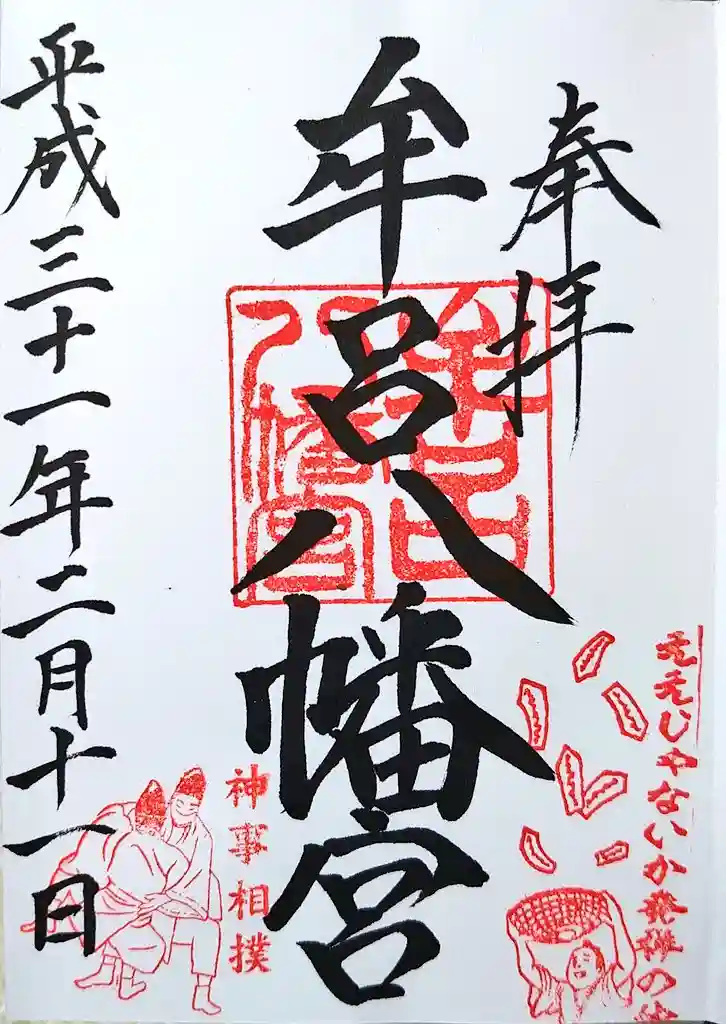 奉拝
牟呂八幡宮
牟呂
八幡宮
ええじゃないか発祥の地
神事相撲
平成三十一年二月十一日